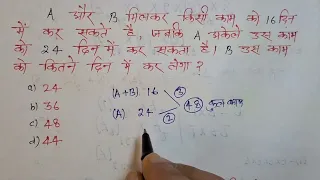 A और B मिलकर किसी काम को 16 दिन
में कर सकते हैं, जबकि A अकेले उस काम
को 24 दिन में कर सकता है। B उस काम
को कितने दिन में कर लेगा?
a) 24
b) 36
c) 48
d) 44
(A+B) 16 3
48 कुल काम
(A) 24 2